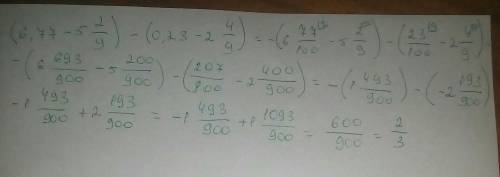 (6,77 - 5 2/9) - (0,23 - 2 4/9) = -(6 77/100 - 5 2/9) - (23/100 - 2 4/9)
-(6 693/900 - 5 200/900) - (207/900 - 2 400/900) = -(1 493/900) - (-2 193/900)
-1 493/900 + 2 193/900 = -1 493/900 + 1 1093/900 = 600/900 = 2/3